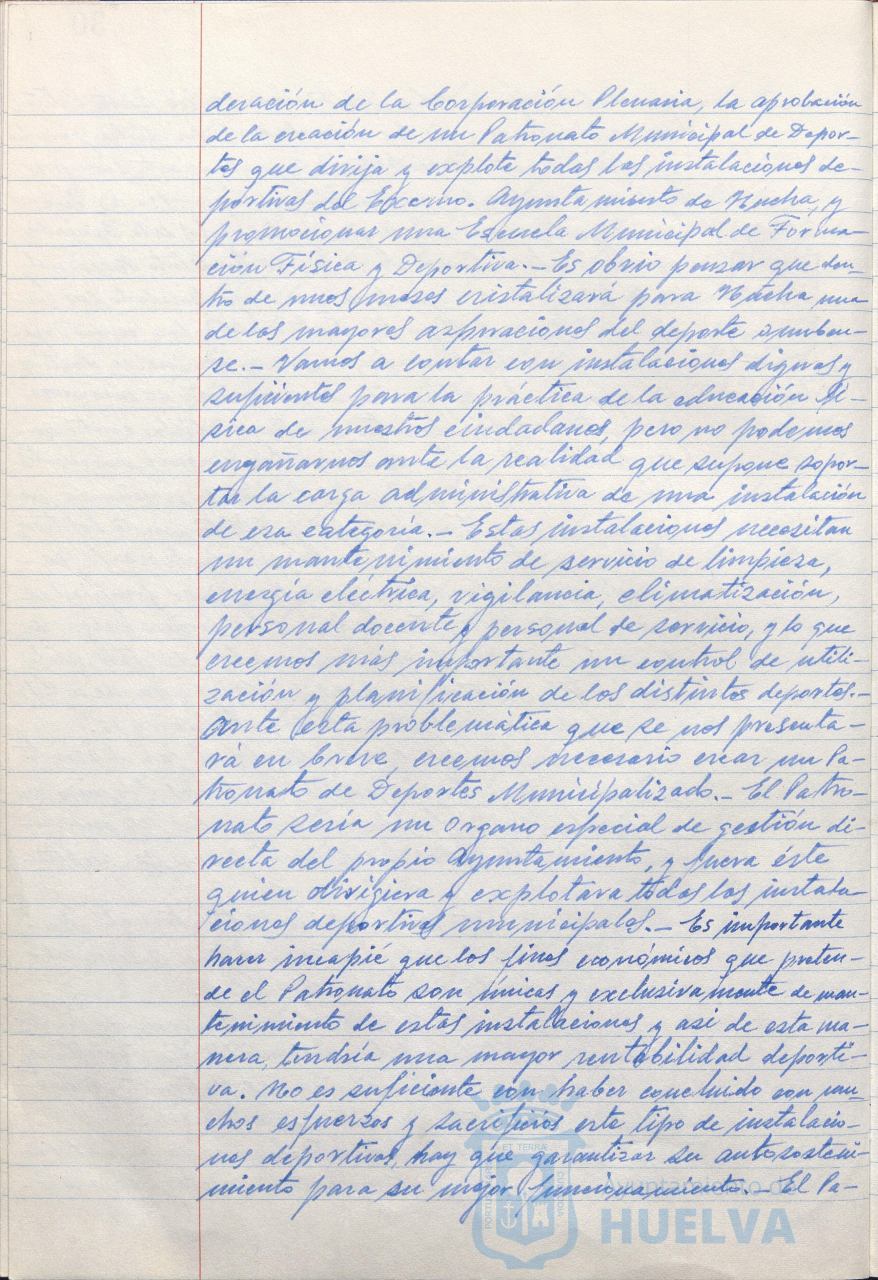 deración de la Corporación Plenaria, la aprobación
de la creación de un Patronato Municipal de Depor-
tes que dirija y explote todas las instalaciones de-
portivas del Excmo. Ayuntamiento de Huelva, y
promocionar una Escuela Municipal de Forma-
ción Física y Deportiva.- Es obvio pensar que den-
tro de unos meses cristalizará para Huelva una
de las mayores aspiraciones del deporte onuben-
se.- Vamos a contar con instalaciones dignas y
suficientes para la práctica de la educación fí-
sica de nuestros ciudadanos, pero no podemos
engañarnos ante la realidad que supone sopor-
tar la carga administrativa de una instalación
de esa categoría.- Estas instalaciones necesitan
un mantenimiento de servicio de limpieza,
energía eléctrica, vigilancia, climatización,
personal docente y personal de servicio, y lo que
creemos más importante un control de utili-
zación y planificación de los distintos deportes.-
Ante esta problemática que se nos presenta-
rá en breve, creemos necesario crear un Pa-
tronato de Deportes Municipalizado.- El Patro-
nato sería un Organo especial de gestión di-
recta del propio Ayuntamiento, y fuera éste
quien dirigiera y explotara todas las instala-
ciones deportivas municipales.- Es importante
hacer incapié que los fines económicos que preten-
de el Patronato son únicas y exclusivamente de man-
tenimiento de estas instalaciones y asi de esta ma-
nera, tendría una mayor rentabilidad deporti-
va. No es suficiente con haber concluido con mu-
chos esfuerzos y sacrificios este tipo de instalacio-
nes deportivas, hay que garantizar su autososteni-
miento para su mejor funcionamiento.- El Pa-
ET TERRA
Ayuntamiento de
HUELVA